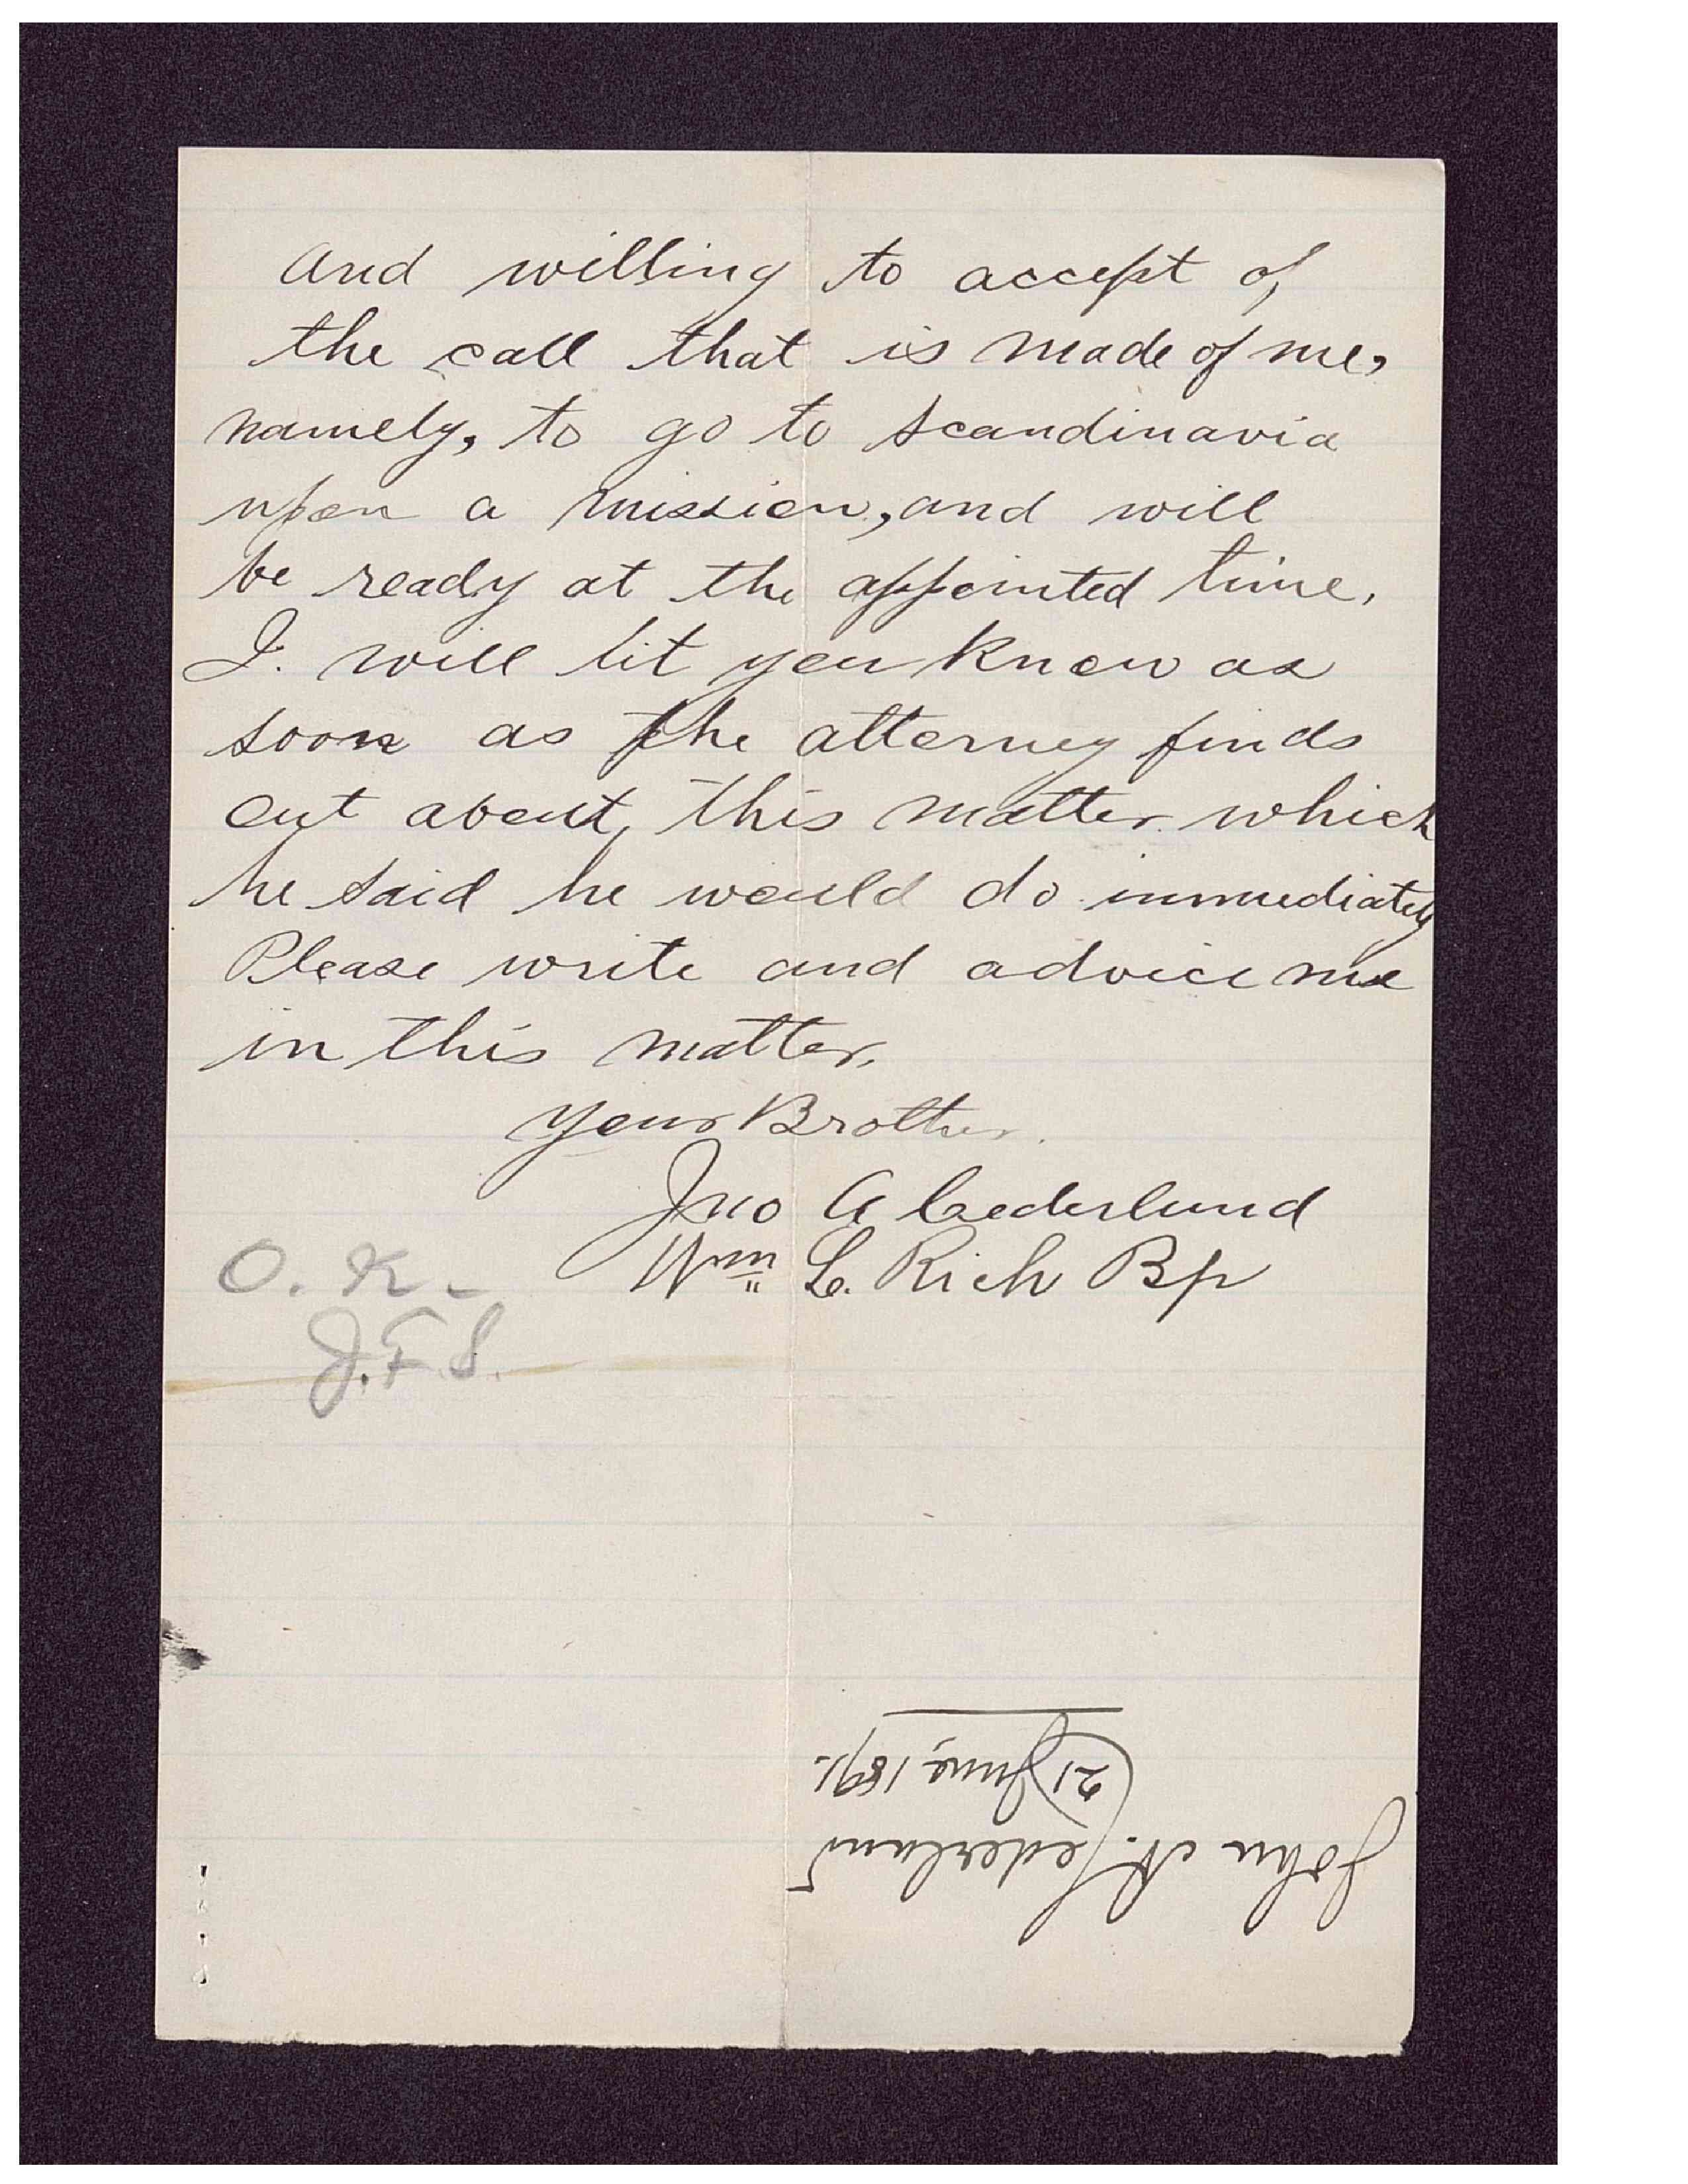 and willing to accept of
the call that is made of me,
namely, to go to Scandinavia
upon a mission, and will
be ready at the appointed time.
I. will lit you know as
soon as the attorney finds
out about, this matter which
he said he would do immediately
Please write and advice me
in this matter.
Your Brother.
Jno A Cederlund
Wm L. Rich Bp
O. K.-
J.F.S.
John A. Cederlund
21 June, 1891.